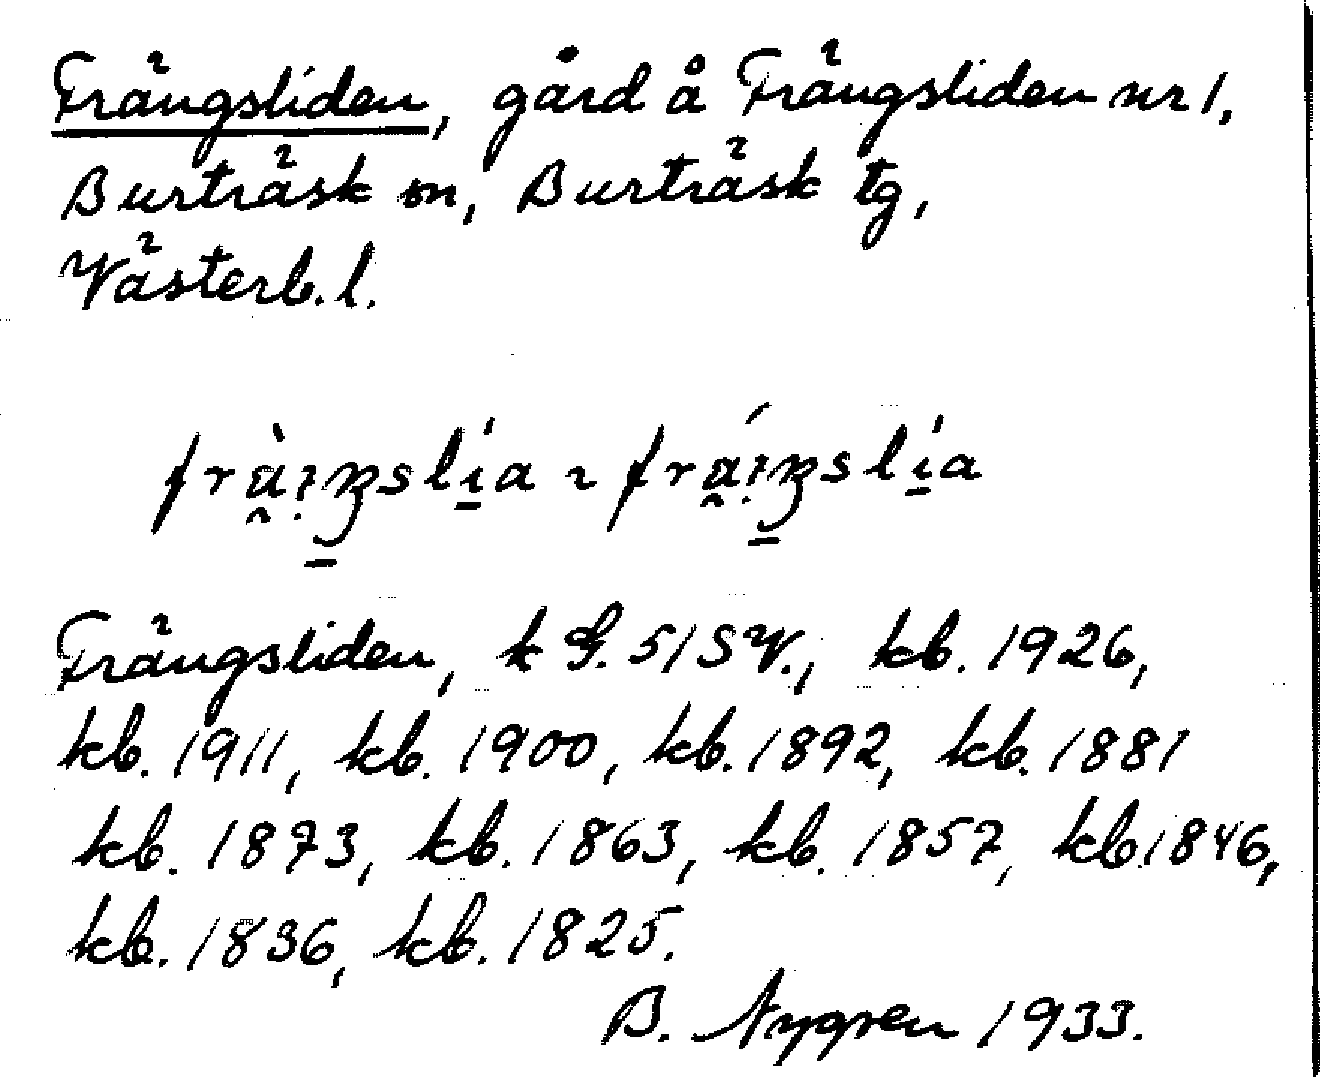 Frängsliden, gård å Frängsliden nr 1,
Burträsk sn, Burträsk tg,
Västerb. l.
Frängsliden, k G. 51 SV., kb. 1926,
kb. 1911, kb. 1900, kb. 1892, kb. 1881
kb. 1873, kb. 1863, kb. 1857, kb. 1846,
kb. 1836, kb. 1825.
B. Nygren 1933.